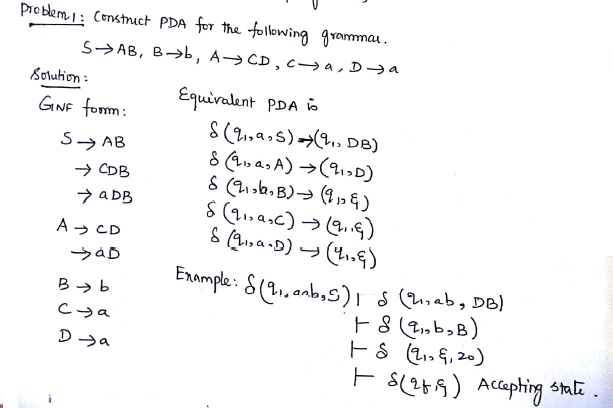 Problem 1: Construct PDA for the following grammar.
S→AB, B→b, A→CD, C→a, D→a
Solution:
GNF form:
S→AB
→CDB
→aDB
A→CD
→aD
B→b
C→a
D→a
Equivalent PDA is
δ(q₁,a,S)→(q₁, DB)
δ(q₁,a,A)→(q₁,D)
δ(q₁,b,B)→(q₁,ε)
δ(q₁,a,C)→(q₁,ε)
δ(q₁,a,D)→(q₁,ε)
Example: δ(q₁,aab,S) ⊢ δ(q₁,ab, DB)
⊢ δ(q₁,b,B)
⊢ δ(q₁,ε,z0)
⊢ δ(qf,ε) Accepting state.